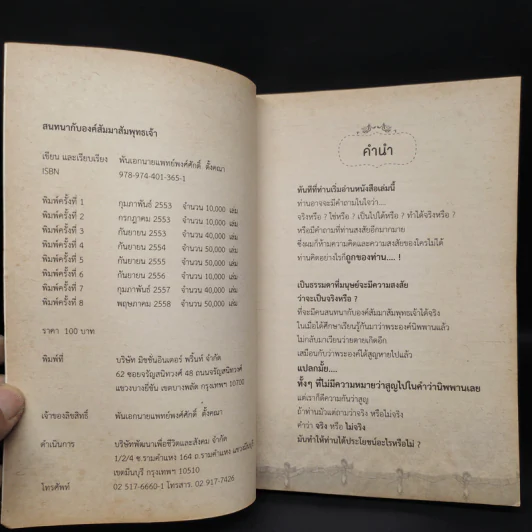 สนทนากับองค์สัมมาสัมพุทธเจ้า
เขียน และเรียบเรียง พันเอกนายแพทย์พงศ์ศักดิ์ ตั้งคณา
ISBN 978-974-401-365-1
พิมพ์ครั้งที่ 1 กุมภาพันธ์ 2553 จำนวน 10,000 เล่ม
พิมพ์ครั้งที่ 2 กรกฎาคม 2553 จำนวน 10,000 เล่ม
พิมพ์ครั้งที่ 3 กันยายน 2553 จำนวน 40,000 เล่ม
พิมพ์ครั้งที่ 4 กันยายน 2554 จำนวน 50,000 เล่ม
พิมพ์ครั้งที่ 5 กันยายน 2555 จำนวน 50,000 เล่ม
พิมพ์ครั้งที่ 6 กันยายน 2556 จำนวน 10,000 เล่ม
พิมพ์ครั้งที่ 7 กุมภาพันธ์ 2557 จำนวน 40,000 เล่ม
พิมพ์ครั้งที่ 8 พฤษภาคม 2558 จำนวน 50,000 เล่ม
ราคา 100 บาท
พิมพ์ที่ บริษัท มิชชั่นอินเตอร์ พริ้นท์ จำกัด
62 ซอยจรัญสนิทวงศ์ 48 ถนนจรัญสนิทวงศ์
แขวงบางยี่ขัน เขตบางพลัด กรุงเทพฯ 10700
เจ้าของลิขสิทธิ์ พันเอกนายแพทย์พงศ์ศักดิ์ ตั้งคณา
ดำเนินการ บริษัทพัฒนาเพื่อชีวิตและสังคม จำกัด
1/2/4 ซ.รามคำแหง 164 ถ.รามคำแหง แขวงมีนบุรี
เขตมีนบุรี กรุงเทพฯ 10510
โทรศัพท์ 02 517-6660-1 โทรสาร. 02 917-7426
คำนำ
ทันทีที่ท่านเริ่มอ่านหนังสือเล่มนี้
ท่านอาจจะมีคำถามในใจว่า....
จริงหรือ ? ใช่หรือ ? เป็นไปได้หรือ ? ทำได้จริงหรือ ?
หรือมีคำถามที่ท่านสงสัยอีกมากมาย
ซึ่งผมก็ห้ามความคิดและความสงสัยของใครไม่ได้
ท่านคิดอย่างไรก็ถูกของท่าน.... !
เป็นธรรมดาที่มนุษย์จะมีความสงสัย
ว่าจะเป็นจริงหรือ ?
ที่จะมีคนสนทนากับองค์สัมมาสัมพุทธเจ้าได้จริง
ในเมื่อได้ศึกษาเรียนรู้กันมาว่าพระองค์นิพพานแล้ว
ไม่กลับมาเวียนว่ายตายเกิดอีก
เสมือนกับว่าพระองค์ได้สูญหายไปแล้ว
แปลกมั้ย....
ทั้งๆ ที่ไม่มีความหมายว่าสูญไปในคำว่านิพพานเลย
แต่เราก็ตีความกันว่าสูญ
ถ้าท่านมัวแต่ถามว่าจริง หรือไม่จริง
คำว่า จริง หรือ ไม่จริง
มันทำให้ท่านได้ประโยชน์อะไรหรือไม่ ?